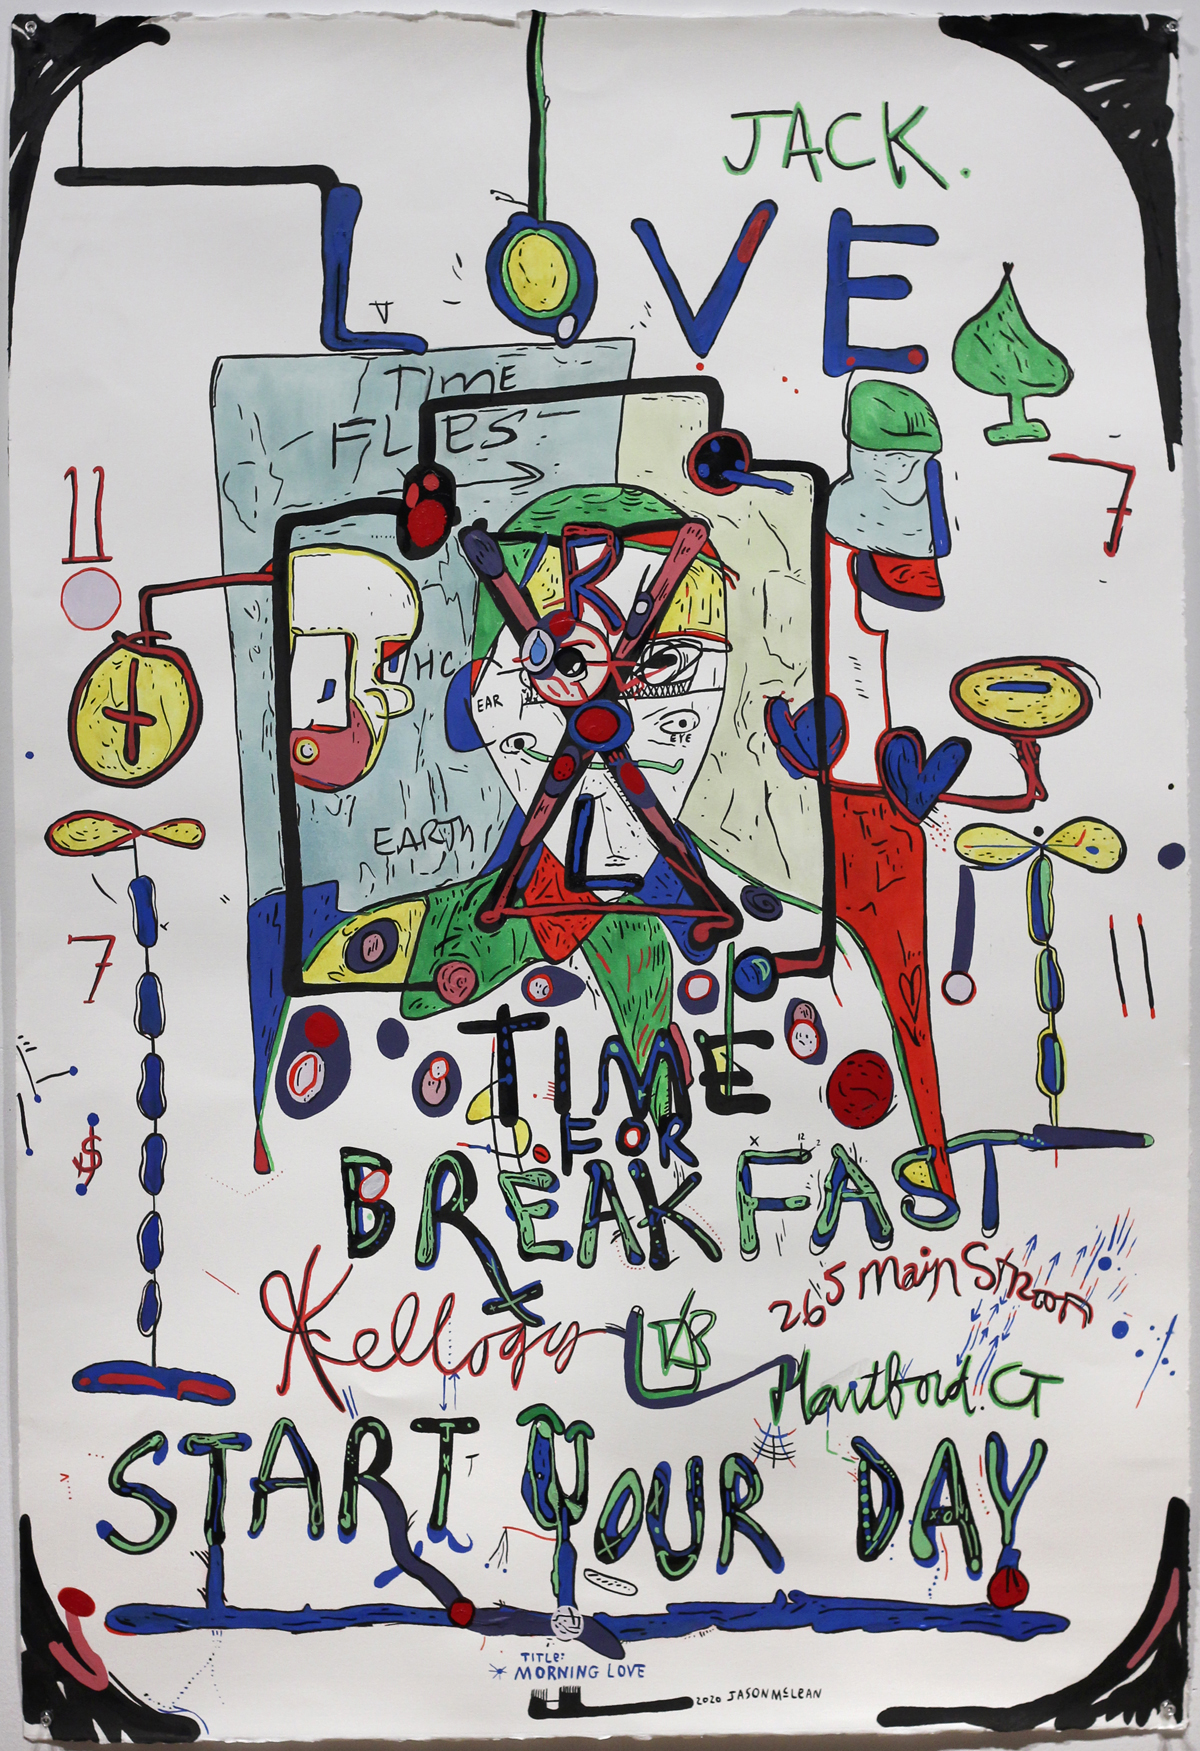 JACK.
LOVE
TIME
FLIES
11
7
R
HC
EAR
EYE
L
EARTH
7
11
TIME
FOR
BREAKFAST
$
265 Main Street
Kellogg
Hartford. CT
START YOUR DAY
TITLE:
MORNING LOVE
2020 JASON McLEAN